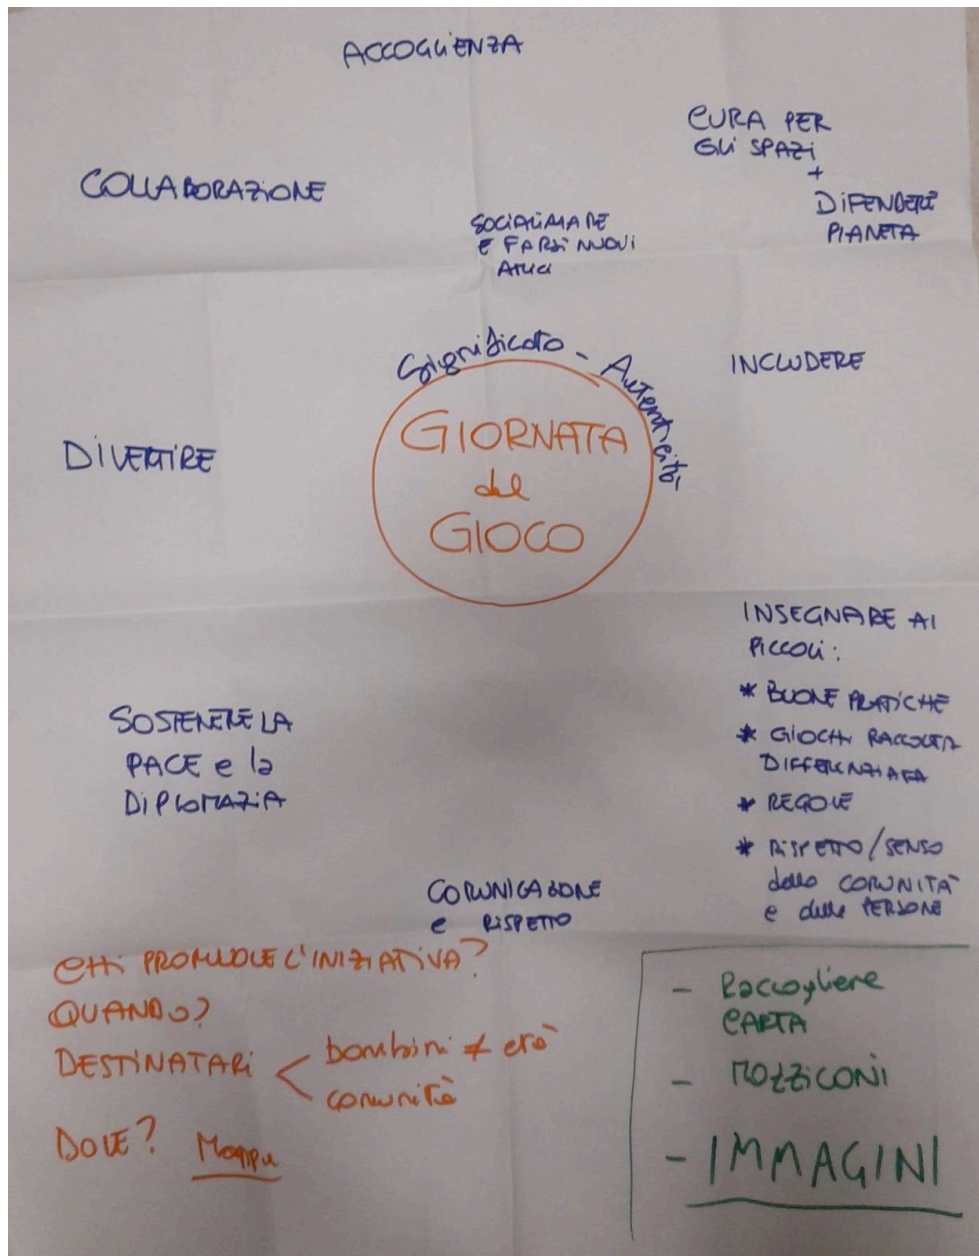 ACCOGLIENZA
CURA PER
GLI SPAZI
+
DIFENDERE
PIANETA
COLLABORAZIONE
SOCIALIZZARE
E FARSI NUOVI
AMICI
Significato - Autenticità
INCLUDERE
GIORNATA
del
GIOCO
DIVERTIRE
INSEGNARE AI
PICCOLI:
* BUONE PRATICHE
* GIOCHI RACCOLTA
DIFFERENZIATA
* REGOLE
* RISPETTO/SENSO
della COMUNITÀ
e delle PERSONE
SOSTENERE LA
PACE e la
DIPLOMAZIA
COMUNICAZIONE
e RISPETTO
CHI PROMUOVE L'INIZIATIVA?
QUANDO?
DESTINATARI < bambini ≠ età
comunità
DOVE? Mappa
- Raccogliere
CARTA
- MOZZICONI
- IMMAGINI